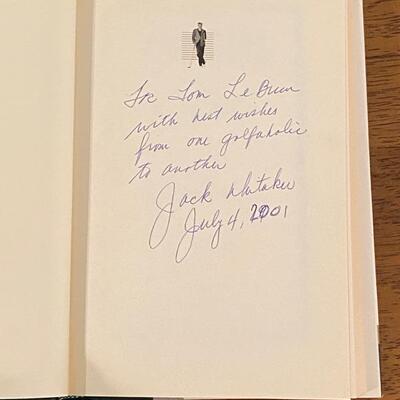 To Tom LeBrun
with best wishes
from one golfaholic
to another
Jack Whitaker
July 4, 2001